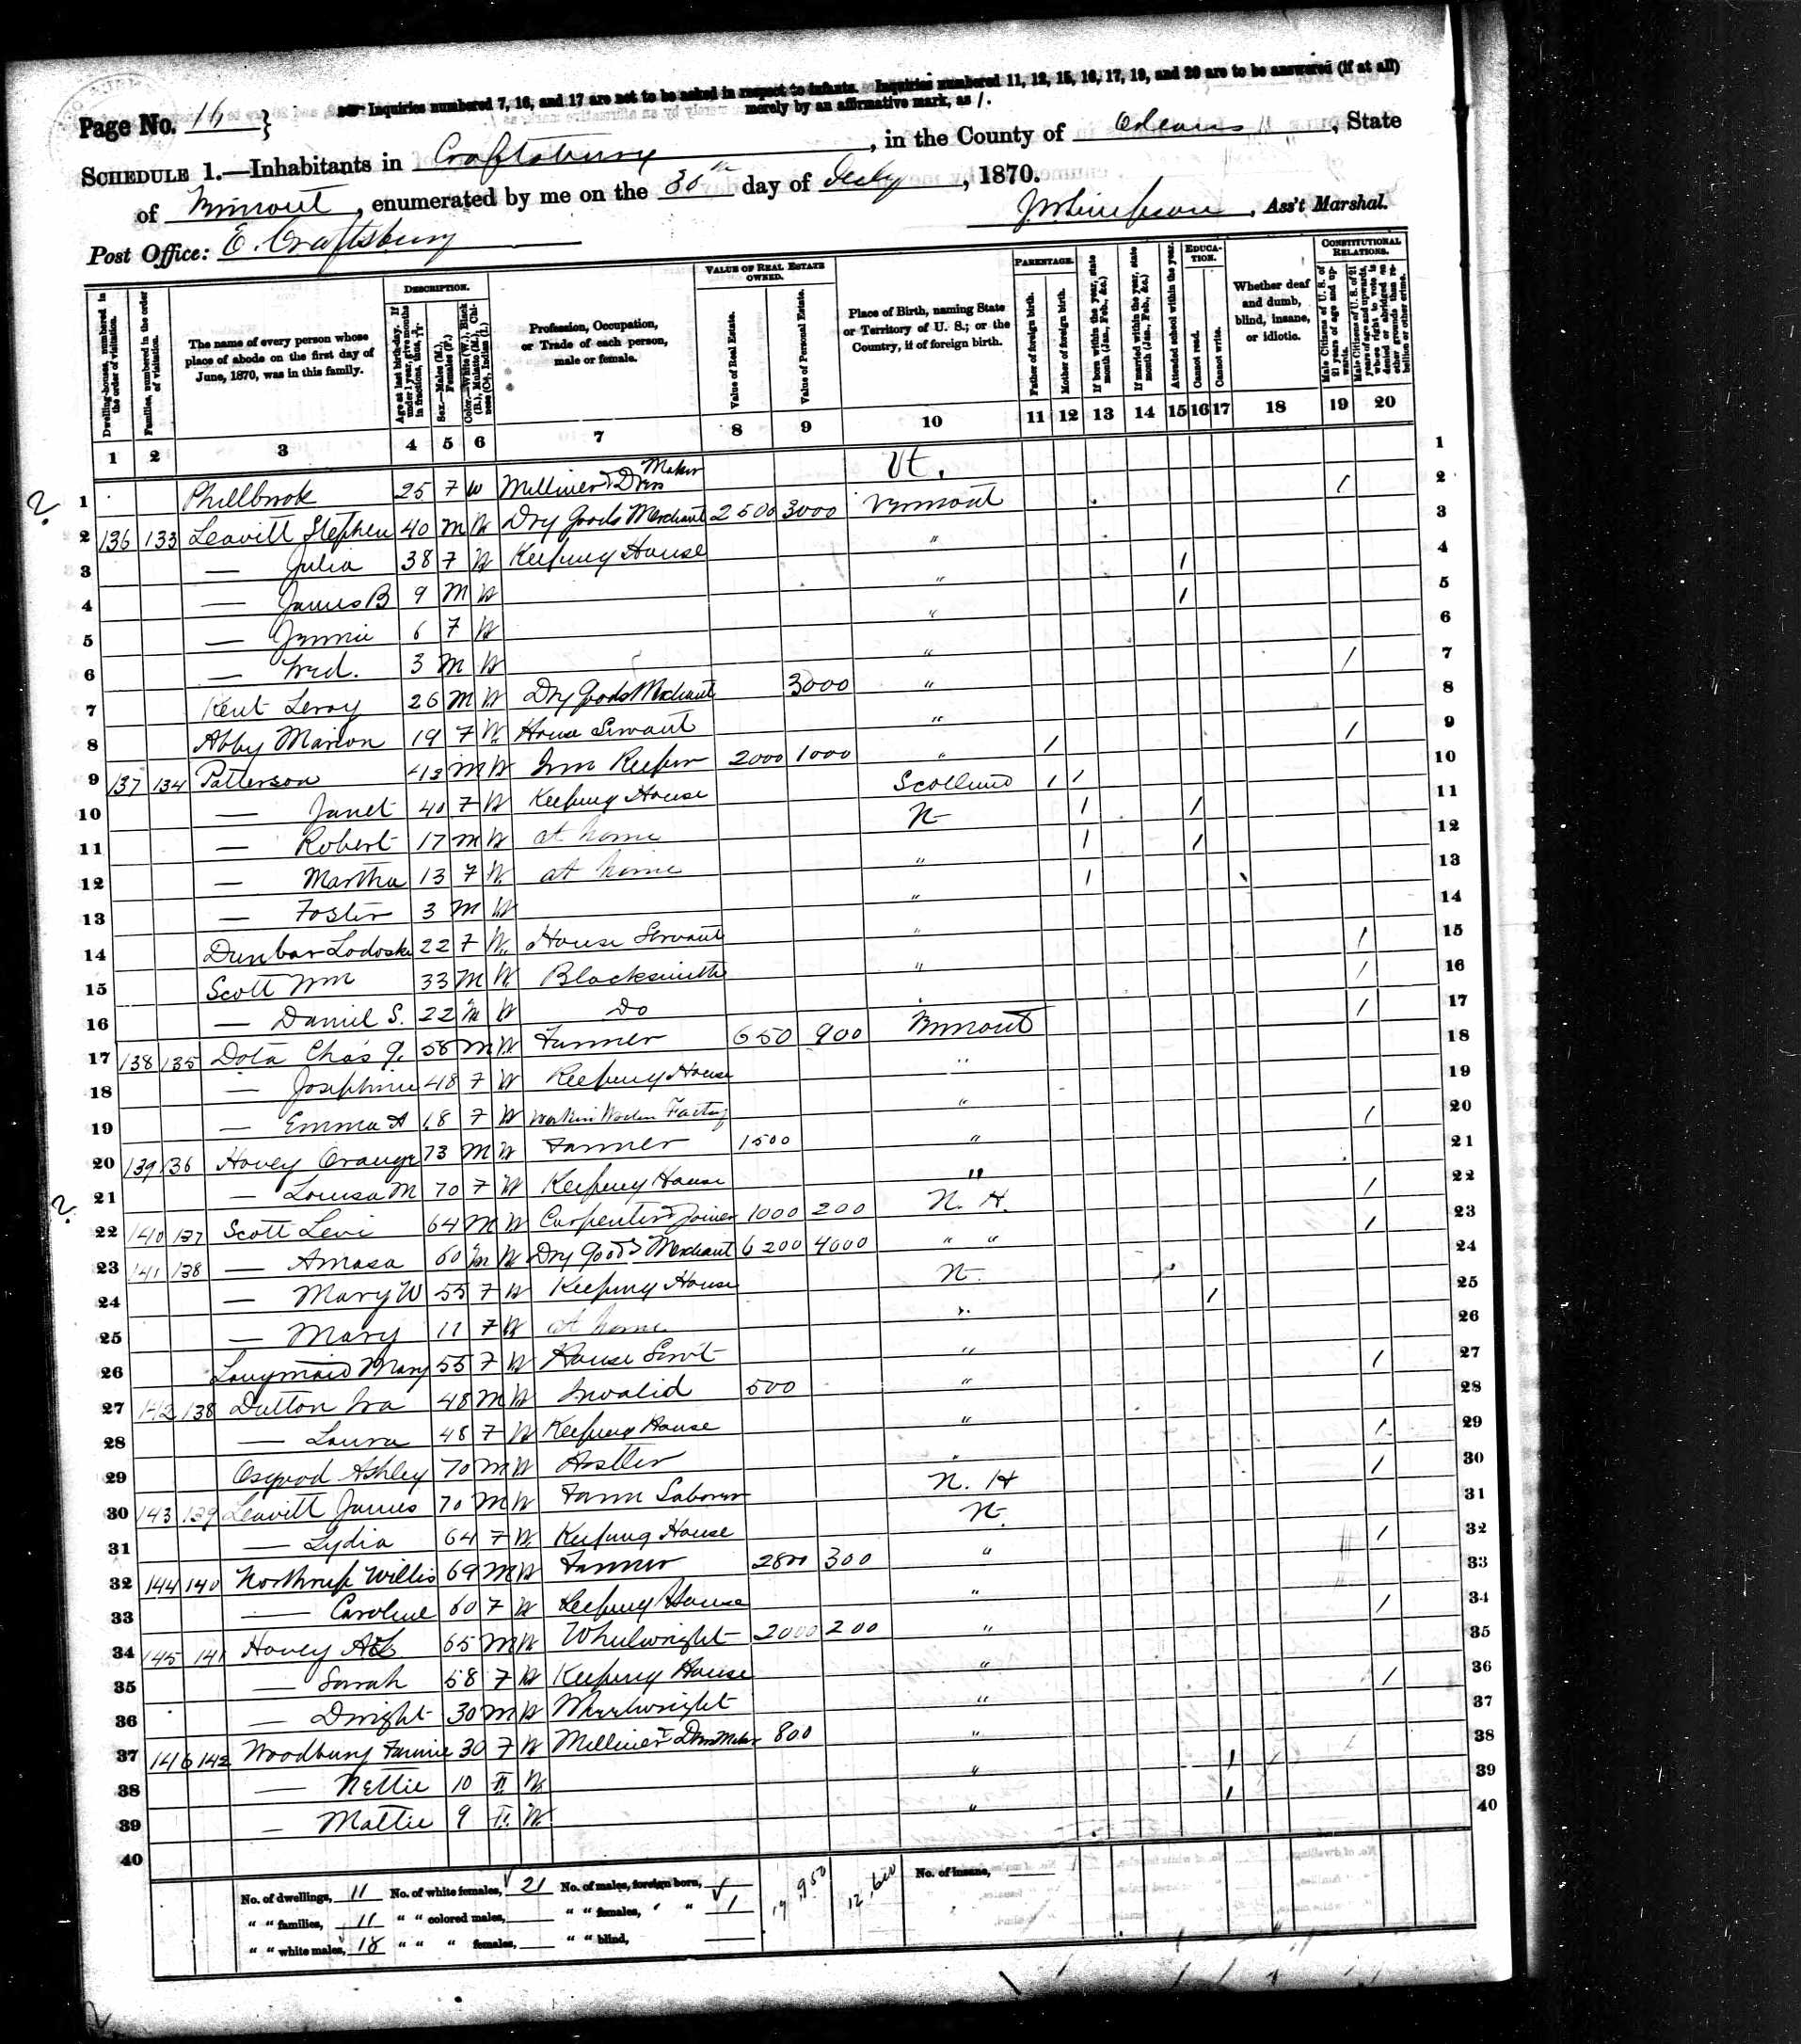 ☞ Inquiries numbered 7, 16, and 17 are not to be asked in respect to infants. Inquiries numbered 11, 12, 15, 16, 17, 19, and 20 are to be answered (if at all)
merely by an affirmative mark, as /.
Page No. 16 }
SCHEDULE 1.—Inhabitants in Craftsbury, in the County of Orleans, State
of Vermont, enumerated by me on the 30th day of July, 1870.
Post Office: E. Craftsbury
, Ass't Marshal.
Dwelling-houses, numbered in the order of visitation.
Families, numbered in the order of visitation.
The name of every person whose place of abode on the first day of June, 1870, was in this family.
DESCRIPTION.
Age at last birth-day. If under 1 year, give months in fractions, thus,
Sex.—Males (M.), Females (F.)
Color.—White (W.), Black (B.), Mulatto (M.), Chinese (C.), Indian (I.)
Profession, Occupation, or Trade of each person, male or female.
VALUE OF REAL ESTATE OWNED.
Value of Real Estate.
Value of Personal Estate.
Place of Birth, naming State or Territory of U. S.; or the Country, if of foreign birth.
PARENTAGE.
Father of foreign birth.
Mother of foreign birth.
If born within the year, state month (Jan., Feb., &c.)
If married within the year, state month (Jan., Feb., &c.)
Attended school within the year.
EDUCATION.
Cannot read.
Cannot write.
Whether deaf and dumb, blind, insane, or idiotic.
CONSTITUTIONAL RELATIONS.
Male Citizens of U. S. of 21 years of age and upwards.
Male Citizens of U. S. of 21 years of age and upwards, whose right to vote is denied or abridged on other grounds than rebellion or other crime.
1 2 3 4 5 6 7 8 9 10 11 12 13 14 15 16 17 18 19 20
1 Phillbrook 25 F W Milliner & Dress Maker Vt.
2 136 133 Leavitt Stephen 40 M W Dry Goods Merchant 2500 3000 Vermont /
3 — Julia 38 F W Keeping House "
4 — James B 9 M W " /
5 — Jennie 6 F W " /
6 — Fred. 3 M W "
7 Kent Leroy 26 M W Dry Goods Merchant 3000 " /
8 Abby Marion 19 F W House Servant "
9 137 134 Patterson 43 M W Inn Keeper 2000 1000 " / /
10 — Janet 40 F W Keeping House Scotland / /
11 — Robert 17 M W at home V / /
12 — Martha 13 F W at home / /
13 — Foster 3 M W " /
14 Dunbar Lodoska 22 F W House Servant "
15 Scott Wm 33 M W Blacksmith " /
16 — Daniel S. 22 M W Do " /
17 138 135 Dota Chas G. 58 M W Farmer 650 900 Vermont /
18 — Josephine 48 F W Keeping House "
19 — Emma A 18 F W Works in Woolen Factory "
20 139 136 Hovey Orange 73 M W Farmer 1500 " /
21 — Louisa M 70 F W Keeping House "
22 140 137 Scott Levi 64 M W Carpenter & Joiner 1000 200 N. H. /
23 141 138 — Amasa 60 M W Dry Goods Merchant 6200 4000 " " /
24 — Mary W 55 F W Keeping House V
25 — Mary 11 F W at home " /
26 Longmaid Mary 55 F W House Servt "
27 142 138 Dutton Ira 48 M W Invalid 500 " /
28 — Laura 48 F W Keeping House "
29 Osgood Ashley 70 M W Hostler " /
30 143 139 Leavitt James 70 M W Farm Laborer N. H /
31 — Lydia 64 F W Keeping House V
32 144 140 Northrup Willis 69 M W Farmer 2800 300 " /
33 — Caroline 60 F W Keeping House "
34 145 141 Hovey 65 M W Wheelwright 2000 200 " /
35 — Sarah 58 F W Keeping House "
36 — Dwight 30 M W Wheelwright " /
37 146 142 Woodbury Fannie 30 F W Milliner & Dress Maker 800 "
38 — Nettie 10 F W " /
39 — Mattie 9 F W " /
40
No. of dwellings, 11 No. of white females, 21 No. of males, foreign born, 19,950 12,600 No. of insane,
" " families, 11 " " colored males, " " females, " " 1
" " white males, 18 " " " females, " " blind,